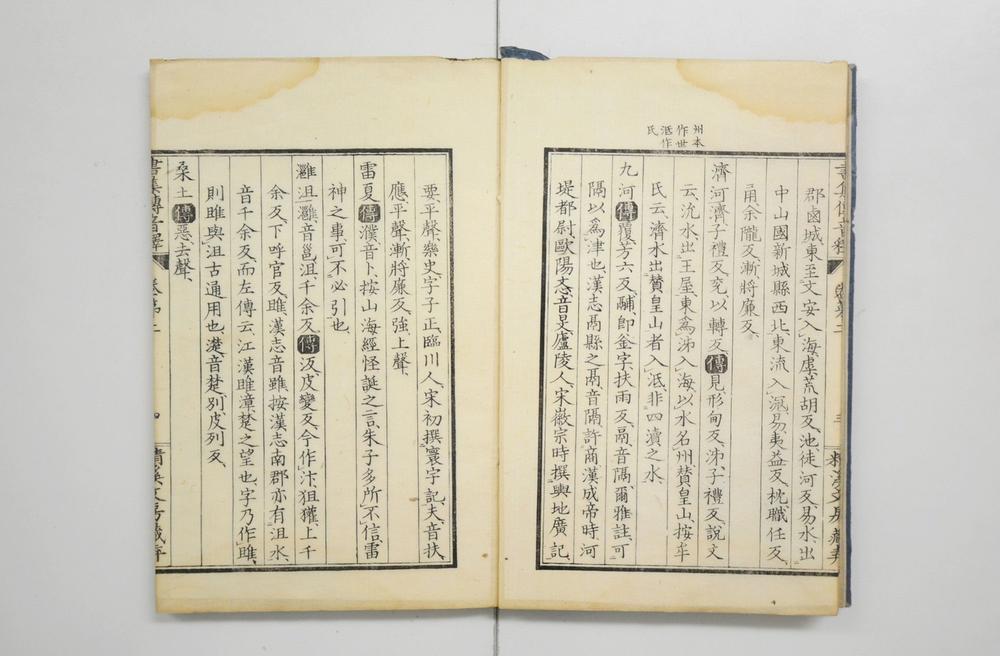 州本
作世
泜作
氏
郡鹵城東至文安入海虖荒胡反池徒河反易水出
中山國新城縣西北東流入滱易夷益反枕職任反
甬余隴反漸將廉反
濟河濟子禮反兗以轉反傳見形甸反泲子禮反說文
云沇水出王屋東為泲入海以水名州贊皇山按
氏云濟水出贊皇山者入泜非四瀆之水
九河傳覆芳六反鬴即釜字扶雨反鬲音隔爾雅註可
隔以為津也漢志鬲縣之鬲音隔許商漢成帝時河
堤都尉歐陽忞音旻廬陵人宋徽宗時撰輿地廣記
書集傳音釋 卷第二
要平聲樂史字子正臨川人宋初撰寰宇記夫音扶
應平聲漸將廉反強上聲
雷夏傳濮音卜按山海經怪誕之言朱子多所不信雷
神之事可不必引也
灉沮灉音邕沮千余反傳汳皮變反今作汴狙玃上千
余反下呼官反睢漢志音雖按漢志南郡亦有沮水
音千余反而左傳云江漢睢漳楚之望也字乃作睢
則睢與沮古通用也濋音楚別皮列反
桑土傳惡去聲
書集傳音釋 卷第二